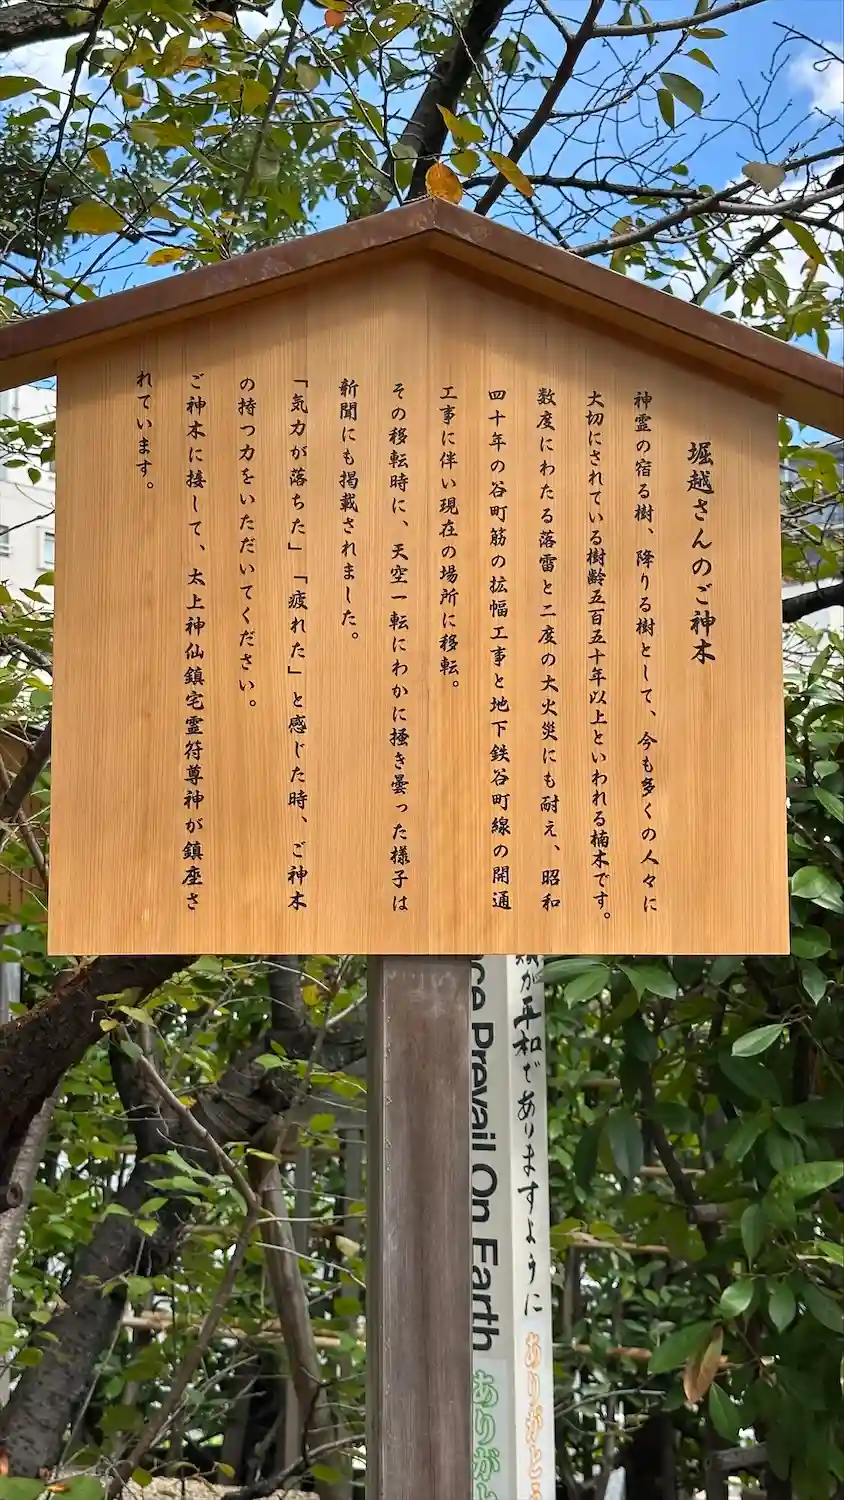 堀越さんのご神木
神霊の宿る樹、降りる樹として、今も多くの人々に
大切にされている樹齢五百五十年以上といわれる楠木です。
数度にわたる落雷と二度の大火災にも耐え、昭和
四十年の谷町筋の拡幅工事と地下鉄谷町線の開通
工事に伴い現在の場所に移転。
その移転時に、天空一転にわかに掻き曇った様子は
新聞にも掲載されました。
「気力が落ちた」「疲れた」と感じた時、ご神木
の持つ力をいただいてください。
ご神木に接して、太上神仙鎮宅霊符尊神が鎮座さ
れています。
が平和でありますように
ありがとう
Prevail On Earth
ありがと